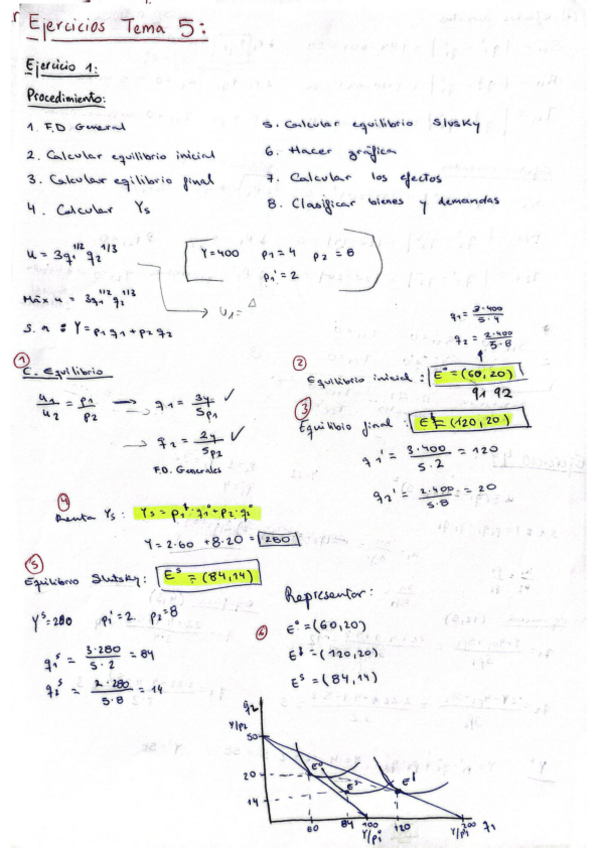 Ejercicios Tema 5:
Ejercicio 1:
Procedimiento:
1. F.D. General
2. Calcular equilibrio inicial
3. Calcular eqilibrio final
4. Calcular Ys
5. Calcular equilibrio Slusky
6. Hacer gráfica
7. Calcular los efectos
8. Clasificar bienes y demandas
u = 3q1^1/2 q2^1/3
Y=400 p1=4 p2=8
p1'=2
Máx u = 3q1^1/2 q2^1/3
s.a: Y=p1q1+p2q2
① E. Equilibrio
u1/u2 = p1/p2 → q1 = 3y/5p1 ✓
→ q2 = 2y/5p2 ✓
F.D. Generales
q1 = 3·400/5·4
q2 = 2·400/5·8
② Equilibrio inicial: E° = (60,20)
q1 q2
③ Equilibio final: Ef = (120,20)
q1' = 3·400/5·2 = 120
q2' = 2·400/5·8 = 20
④ Renta Ys: Ys = p1f·q1°+p2·q2°
Y=2·60 +8·20 = 280
⑤ Equilibrio Slutsky: Es = (84,14)
Ys=280 p1'=2 p2=8
q1s = 3·280/5·2 = 84
q2s = 2·280/5·8 = 14
⑥ Representar:
E° = (60,20)
Ef = (120,20)
Es = (84,14)
q2
Y/p2
50
20
14
E° Es Ef
60 84 100 120 200 q1
Y/p1° Y/p1'